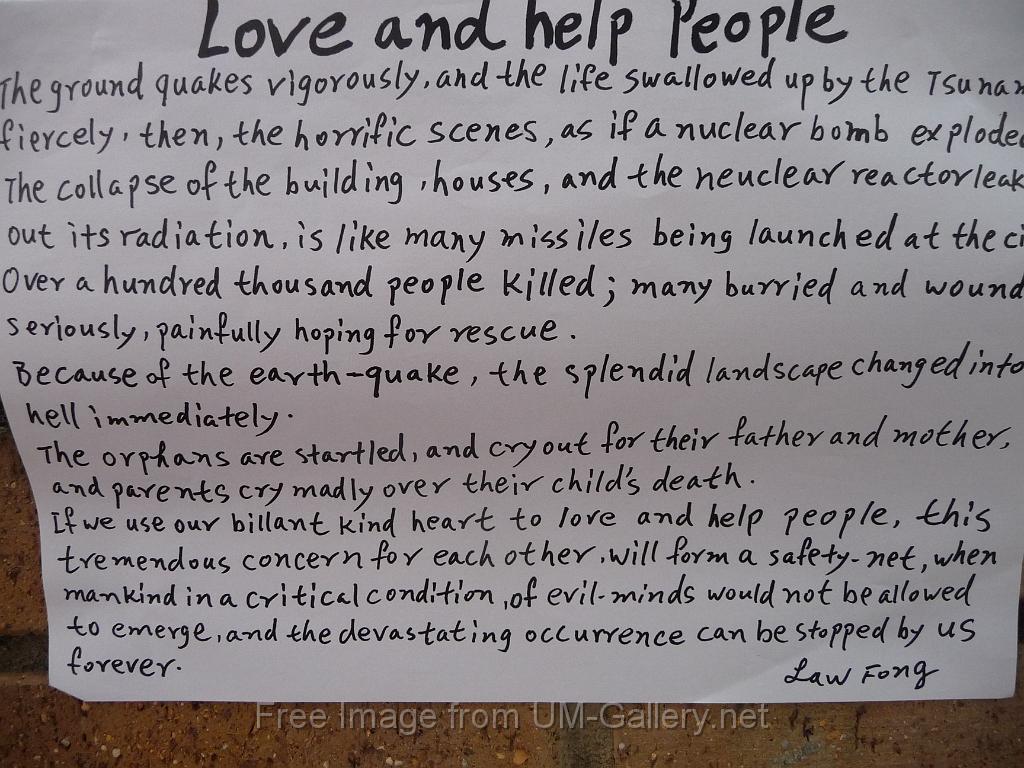 Love and help People
The ground quakes vigorously, and the life swallowed up by the Tsunam
fiercely, then, the horrific scenes, as if a nuclear bomb exploded
The collapse of the building, houses, and the neuclear reactor leak
out its radiation, is like many missiles being launched at the ci
Over a hundred thousand people killed; many burried and wound
seriously, painfully hoping for rescue.
Because of the earth-quake, the splendid landscape changed into
hell immediately.
The orphans are startled, and cry out for their father and mother,
and parents cry madly over their child's death.
If we use our billant kind heart to love and help people, this
tremendous concern for each other, will form a safety-net, when
mankind in a critical condition, of evil-minds would not be allowed
to emerge, and the devastating occurrence can be stopped by us
forever.
Law Fong
Free Image from UM-Gallery.net